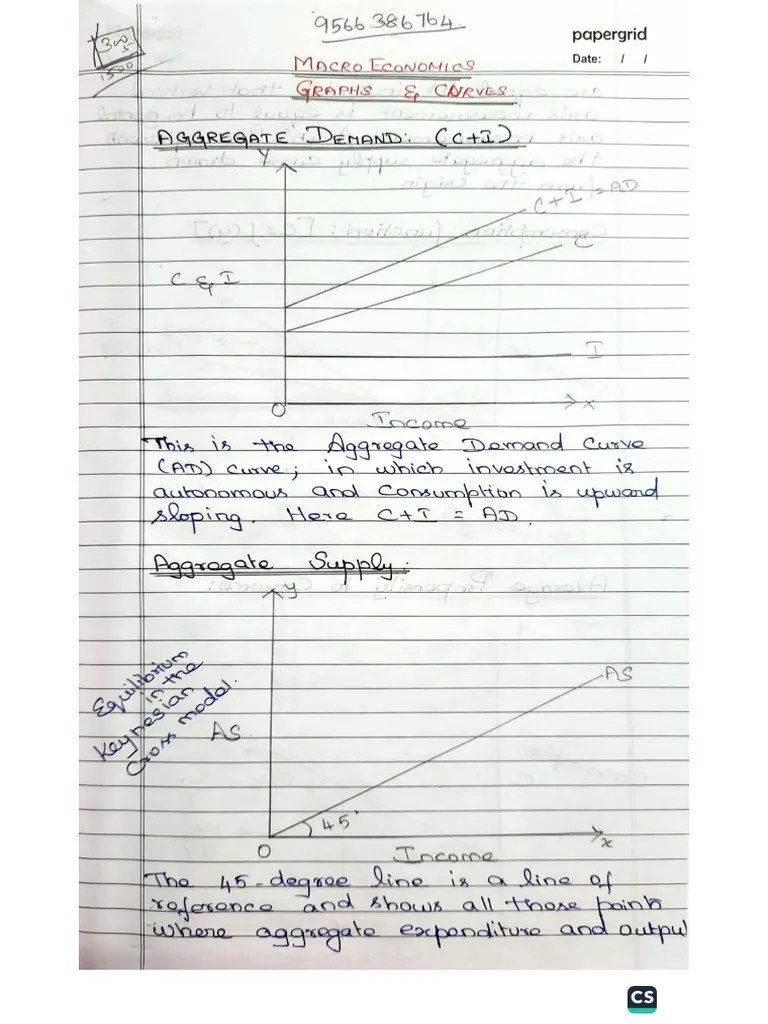 9566386764
papergrid
Date: / /
300
5
1500
MACRO ECONOMICS
GRAPHS & CURVES
AGGREGATE DEMAND: (C+I)
Y
C+I = AD
C
C & I
I
O
x
Income
This is the Aggregate Demand Curve
(AD) curve; in which investment is
autonomous and Consumption is upward
sloping. Here C+I = AD.
Aggregate Supply:
y
Equilibrium
in the
Keynesian
Cross model.
AS
AS
45°
O
x
Income
The 45-degree line is a line of
reference and shows all those points
where aggregate expenditure and output
CS